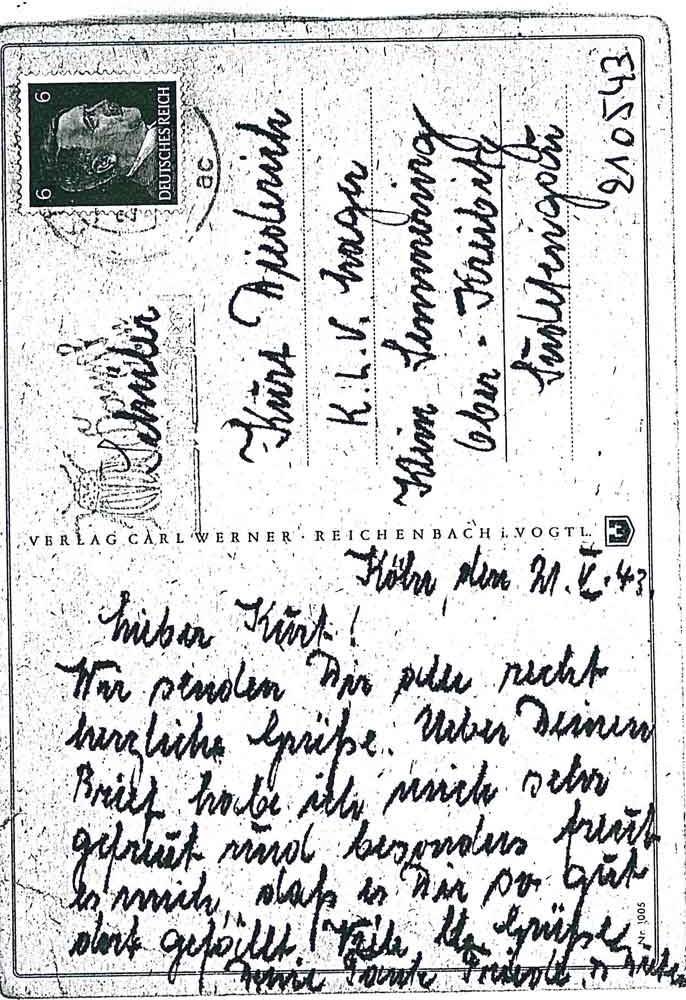 6 6
DEUTSCHES REICH
ac
Schüler
Kurt Diederich
K.L.V. Lager
Klein Semmering
Ober-Kreibitz
Sudetengau
210543
VERLAG CARL WERNER · REICHENBACH i. VOGTL.
Köln, den 21.V.43.
Lieber Kurt!
Wir senden Dir alle recht
herzliche Grüße. Ueber Deinen
Brief habe ich mich sehr
gefreut und besonders freut
es mich, daß es Dir so gut
dort gefällt. Viele Grüße
Deine Tante Friedel
Nr. 1005